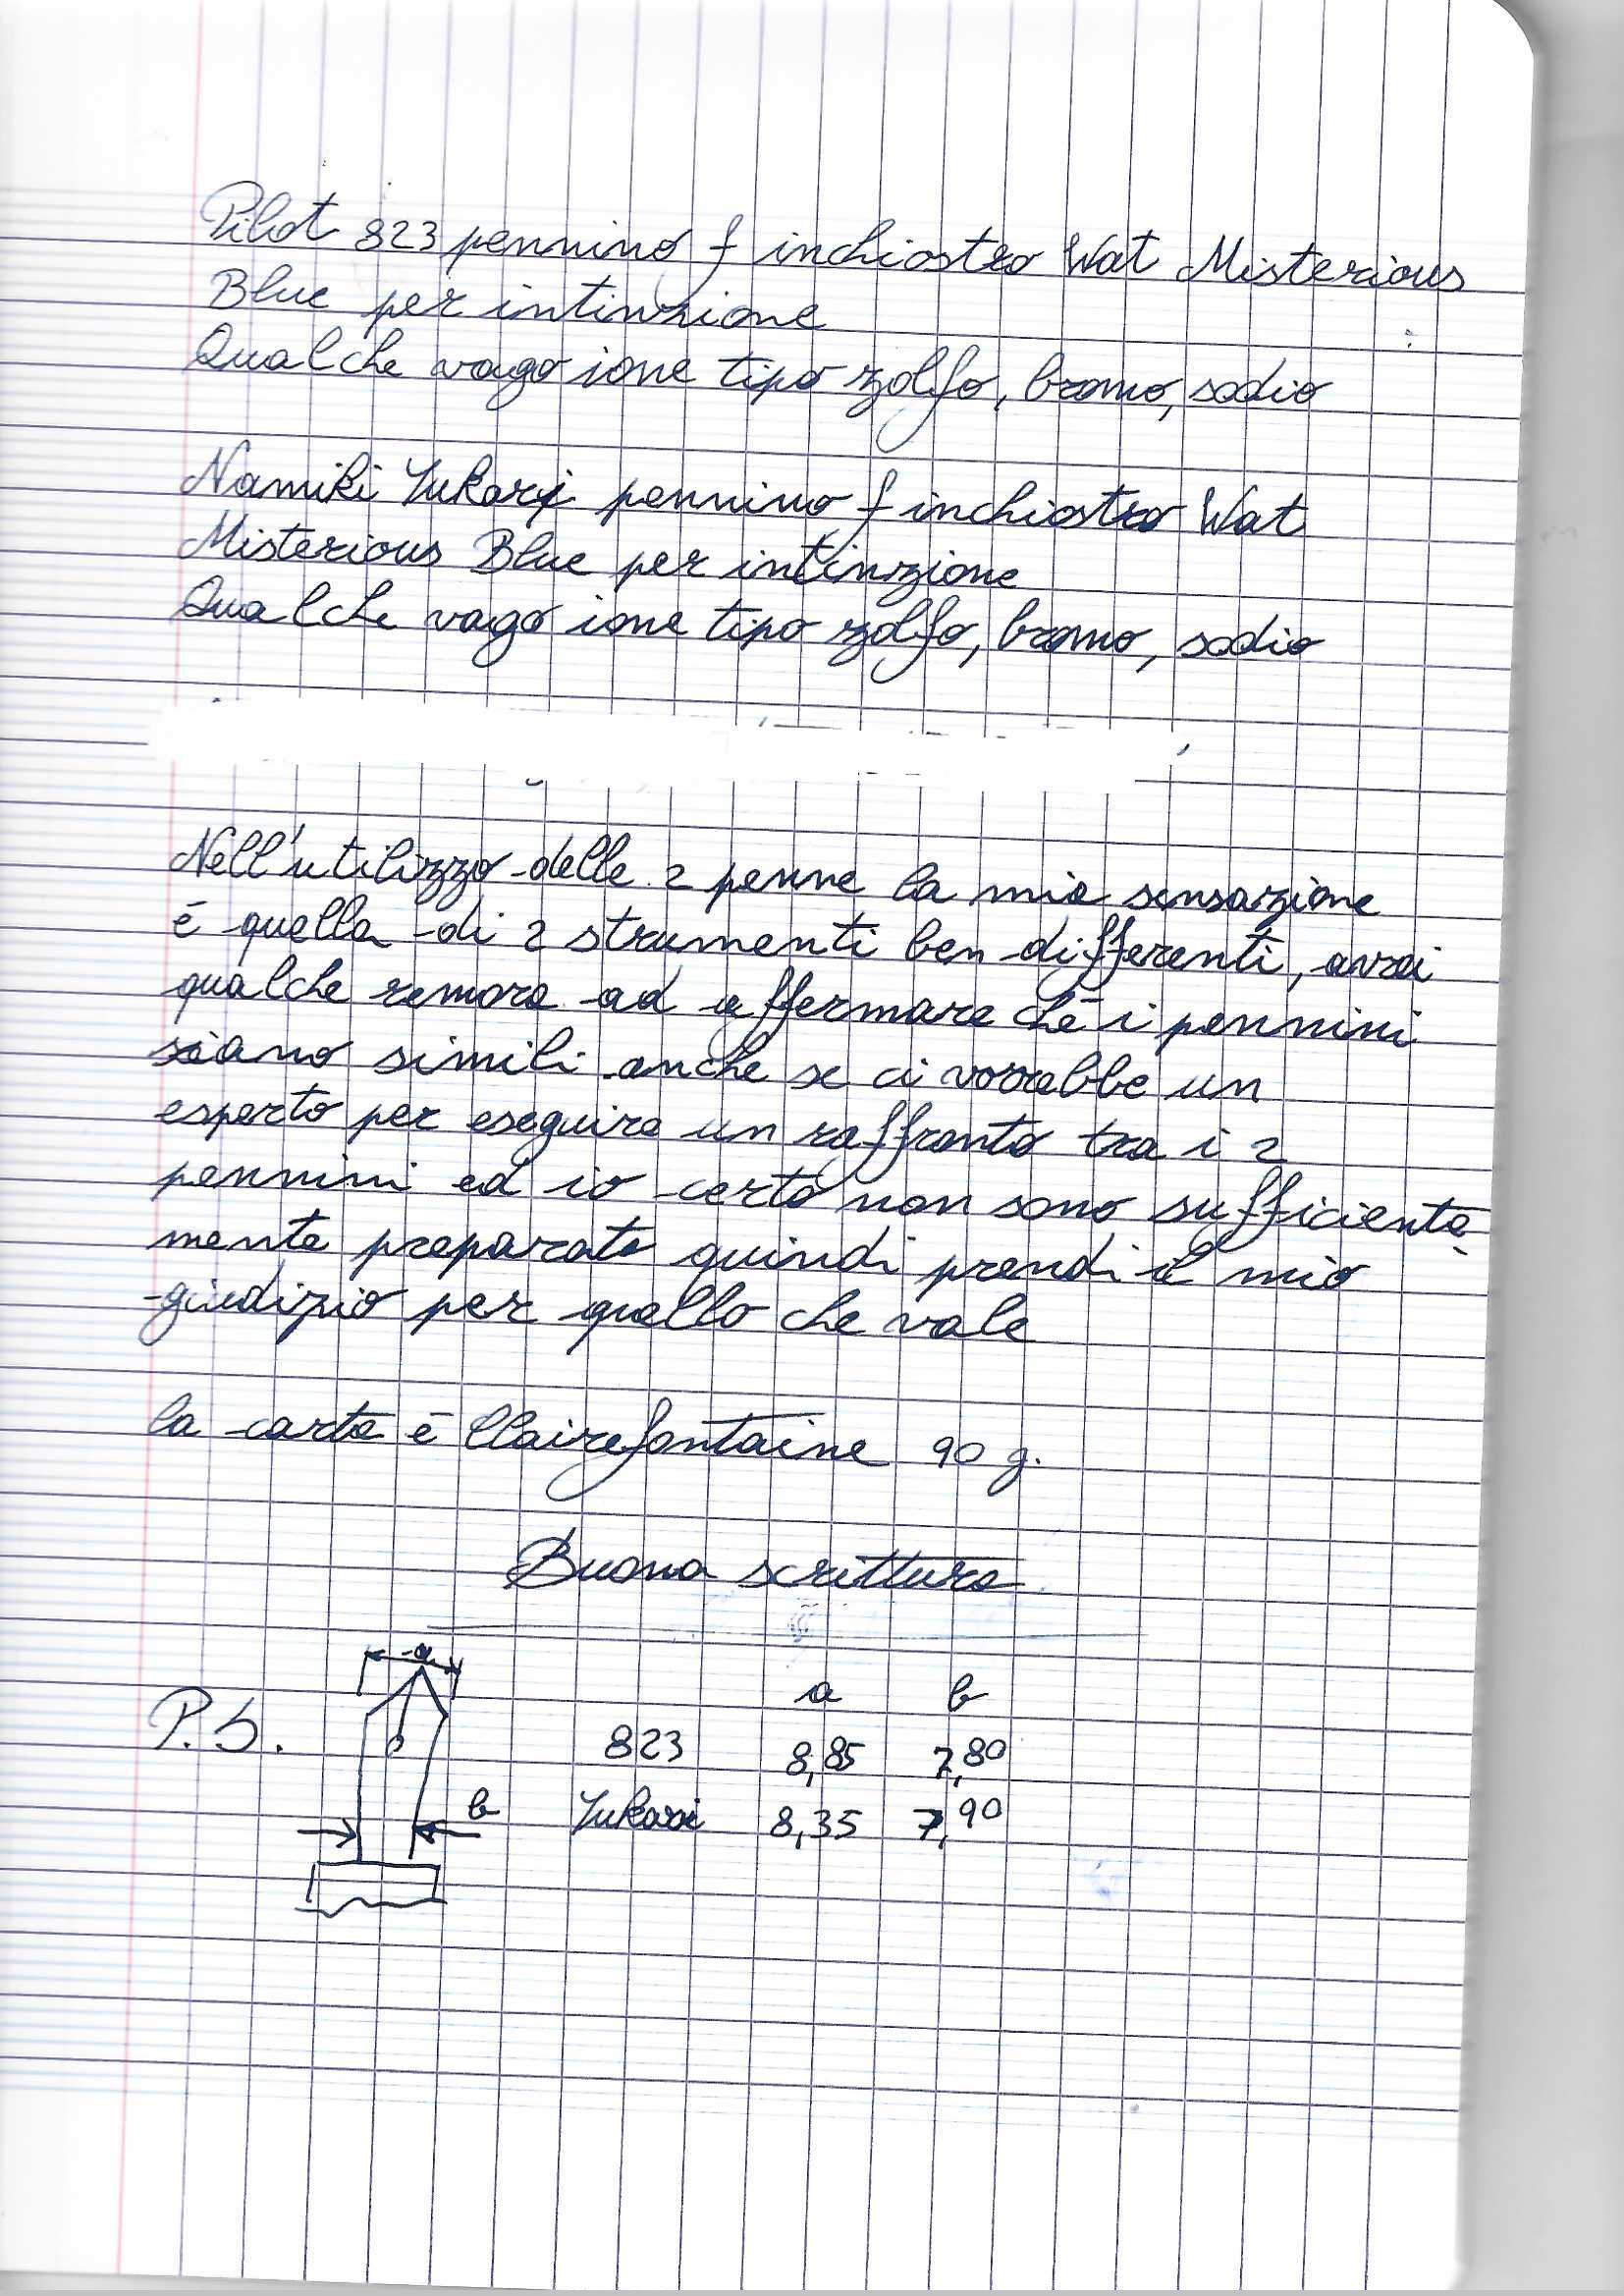 Pilot 823 pennino f inchiostro Wat Misterious
Blue per intinzione
Qualche vago ione tipo zolfo, bromo, sodio
Namiki Yukari pennino f inchiostro Wat
Misterious Blue per intinzione
Qualche vago ione tipo zolfo, bromo, sodio
Nell'utilizzo delle 2 penne la mia sensazione
è quella di 2 strumenti ben differenti, avrei
qualche remora ad affermare che i pennini
siano simili anche se ci vorrebbe un
esperto per eseguire un raffronto tra i 2
pennini ed io certo non sono sufficiente
mente preparato quindi prendi il mio
giudizio per quello che vale
la carta è Clairefontaine 90 g.
Buona scrittura
a
a b
P.S.
823 8,85 7,80
b
Yukari 8,35 7,90